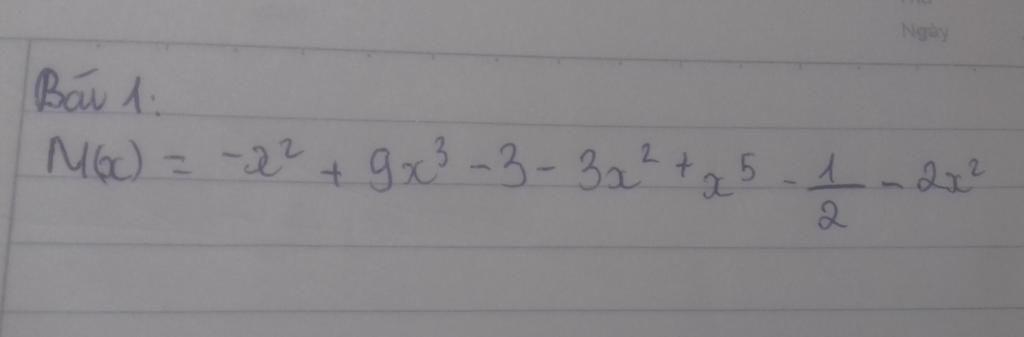 Ngày
Bài 1:
M(x) = -x² + 9x³ - 3 - 3x² + x⁵ - 1/2 - 2x²